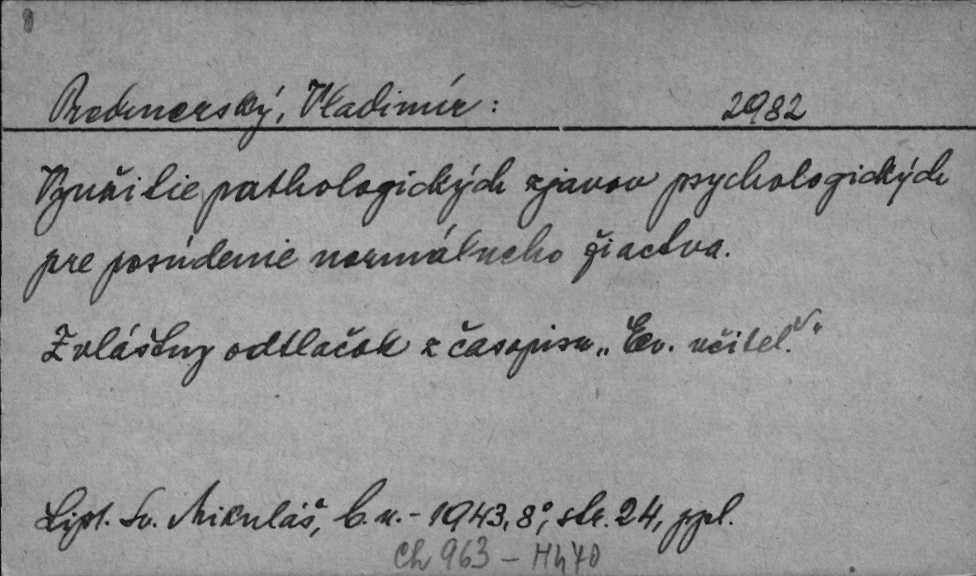 Predmerský, Vladimír: 2982
Využilie pathologických zjavov psychologických
pre posúdenie normálneho žiactva.
Zvláštny odtlačok z časopisu „Ev. učitel̕.“
Lipt. Sv. Mikuláš, b. n. - 1943, 8°, str. 24, ppl.
Ch 963 - Hh70